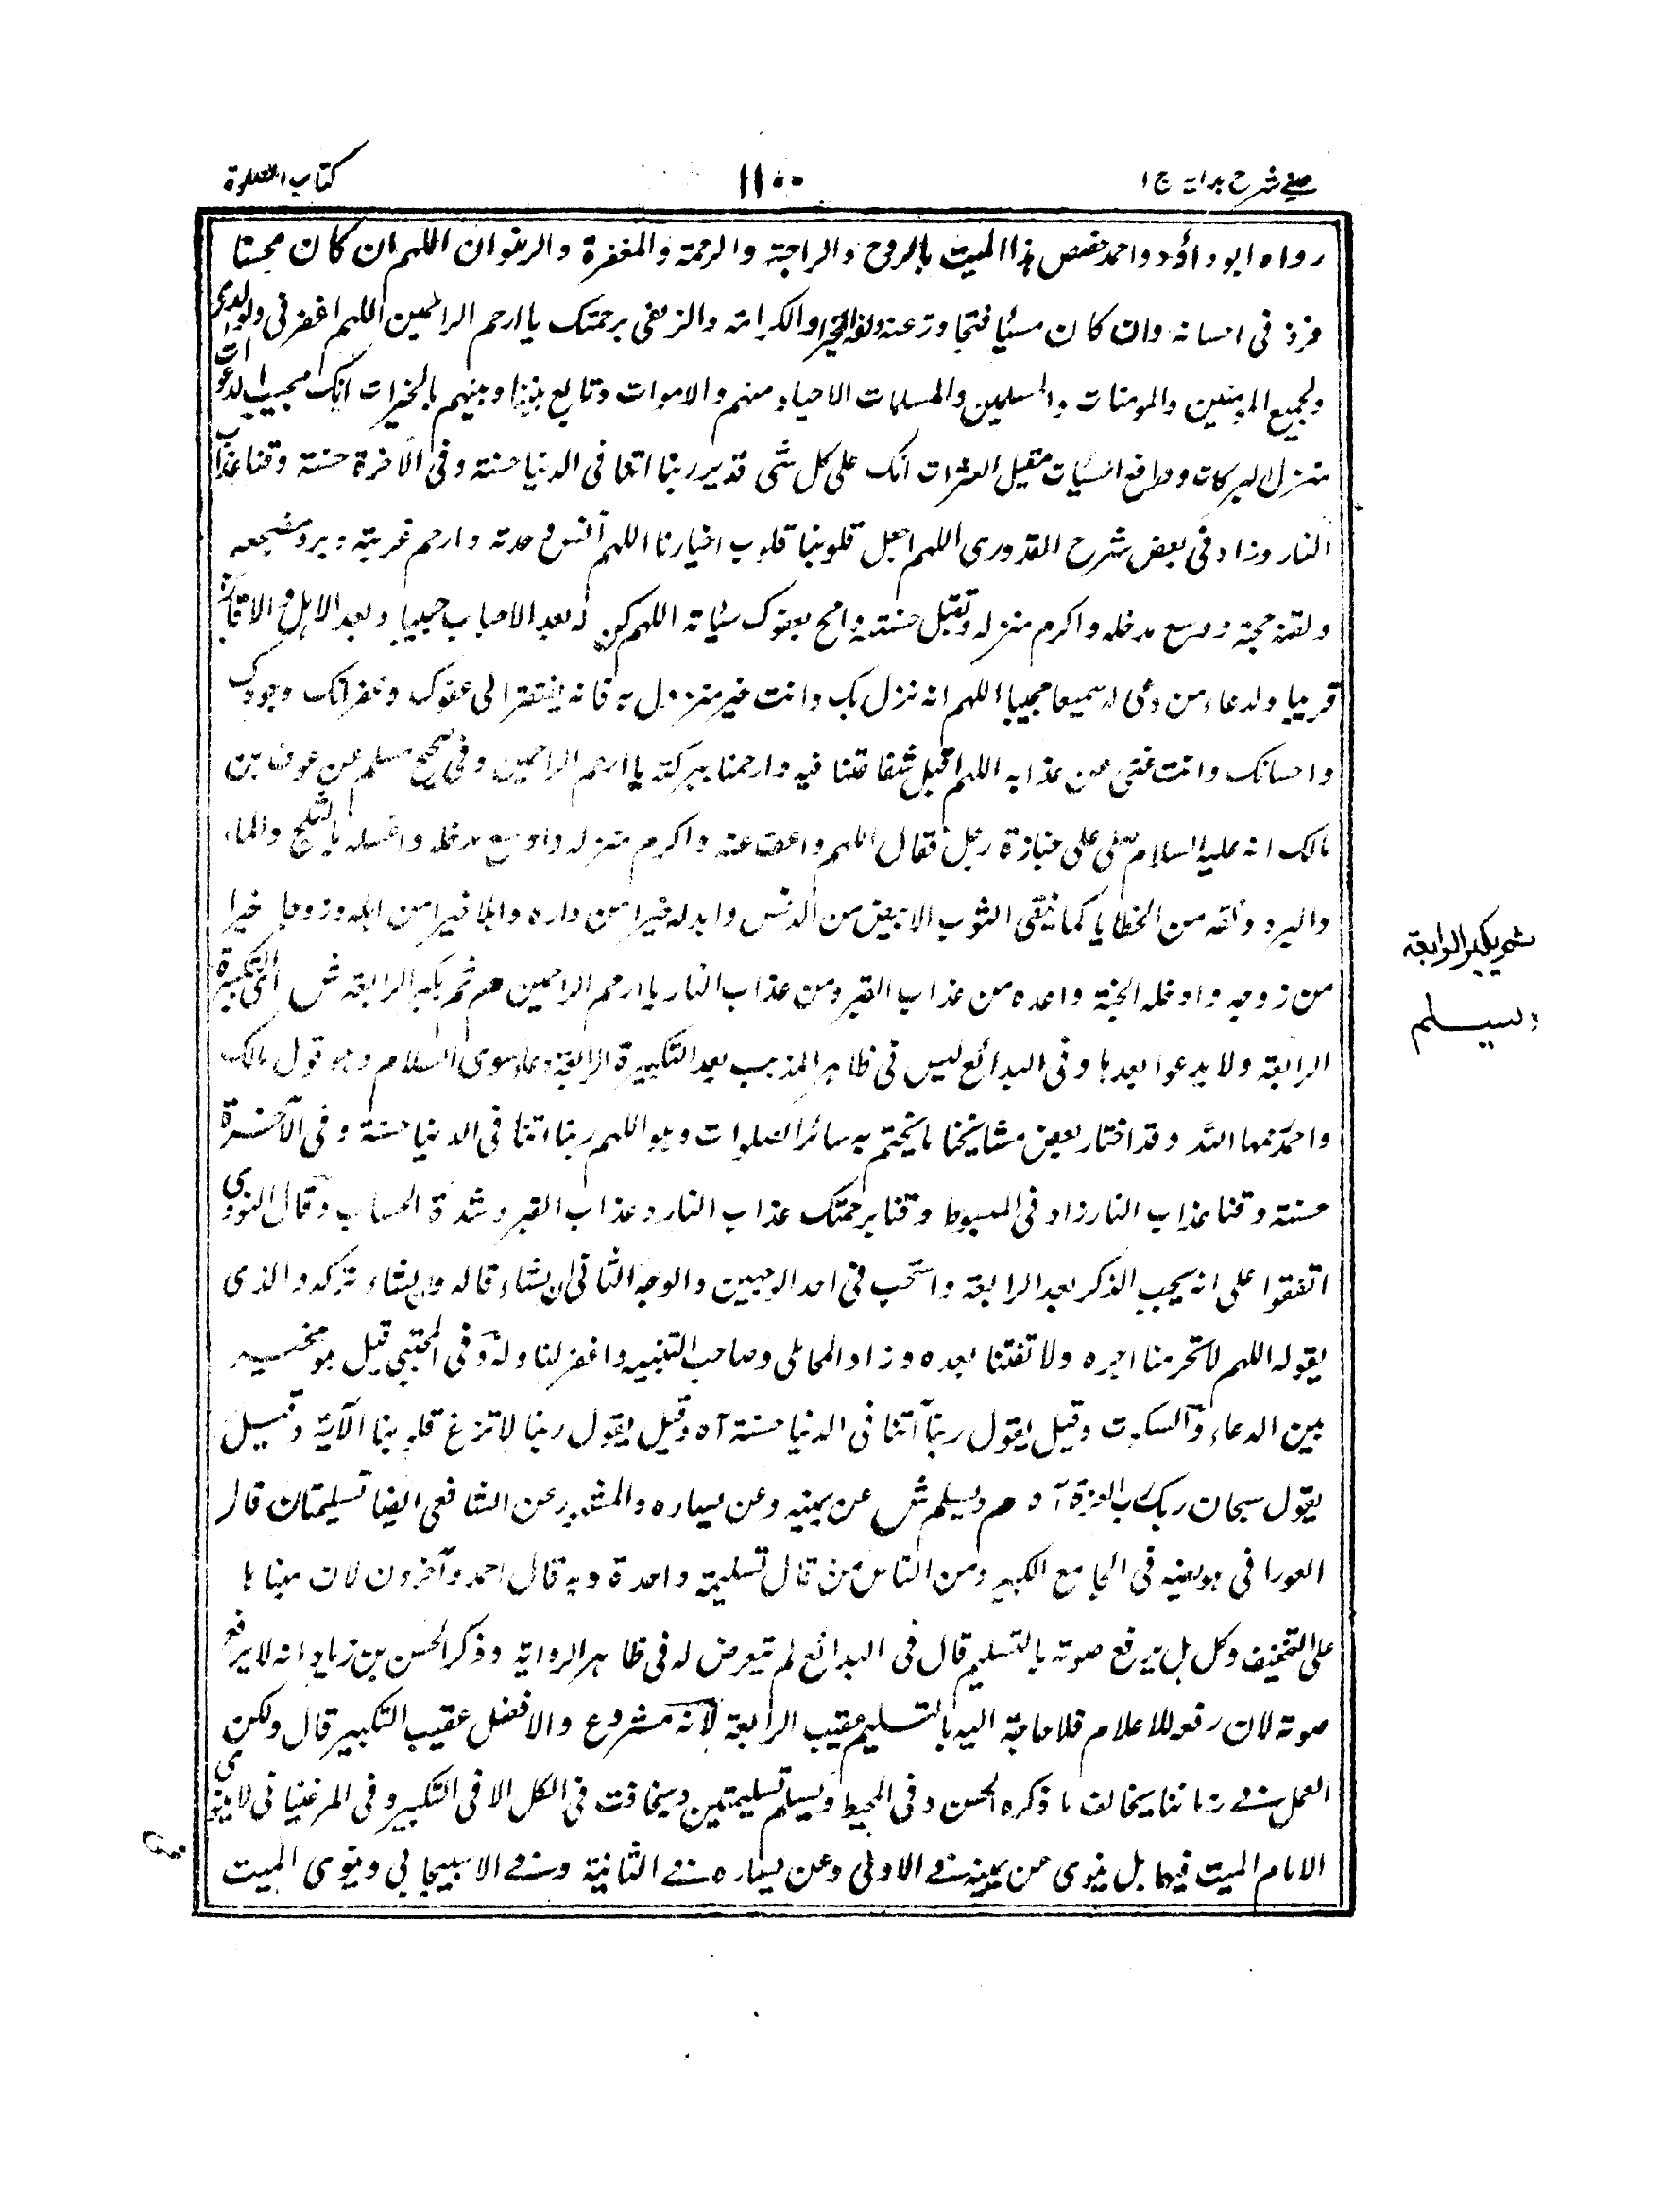 عینی شرح ہدایہ ج ١
١١٠٠
کتاب الصلوة
رواه ابو داؤد واحمد خصص هذا المیت بالروح والراحة والرحمة والمغفرة والرضوان اللهم ان کان محسنا
فزد فی احسانه وان کان مسئیا فتجاوز عنه ولقه الخیر والکرامة والزلفی برحمتک یا ارحم الراحمین اللهم اغفر لی ولوالدی
ولجمیع المومنین والمومنات والمسلمین والمسلمات الاحیاء منهم والاموات وتابع بیننا وبینهم بالخیرات انک مجیب الدعوات
منزل البرکات ودافع السیئات مقیل العثرات انک علی کل شی قدیر ربنا اتنا فی الدنیا حسنة وفی الآخرة حسنة وقنا عذاب
النار وزاد فی بعض شرح القدوری اللهم اجعل قلوبنا قلوب اخیارنا اللهم آنس وحدته وارحم غربته وبرد مضجعه
ولقنه حجته ووسع مدخله واکرم منزله وتقبل حسنته وامح بعفوک سیئاته اللهم کن له بعد الاحباب حبیبا وبعد الاهل والاقارب
قریبا ولدعاء من دعی له سمیعا مجیبا اللهم انه نزل بک وانت خیر منزول به فانه یفتقر الی عفوک وغفرانک وجودک
واحسانک وانت غنی عن عذابه اللهم اقبل شفاعتنا فیه وارحمنا ببرکته یا ارحم الراحمین وفی صحیح مسلم عن عوف بن
مالک انه علیه السلام صلی علی جنازة رجل فقال اللهم واعف عنه واکرم منزله واوسع مدخله واغسله بالثلج والماء
والبرد ونقه من الخطایا کما ینقی الثوب الابیض من الدنس وابدله خیرا من داره واهلا خیرا من اهله وزوجا خیرا
من زوجه وادخله الجنة واعده من عذاب القبر ومن عذاب النار یا ارحم الراحمین م ثم یکبر الرابعة ش ای التکبیرة
الرابعة ولا یدعوا بعدها وفی البدائع لیس فی ظاهر المذهب بعد التکبیرة الرابعة دعاء سوی السلام وهو قول مالک
واحمد رحمهما الله وقد اختار بعض مشائخنا ما یختم به سائر الصلوات وهو اللهم ربنا اتنا فی الدنیا حسنة وفی الآخرة
حسنة وقنا عذاب النار زاد فی المبسوط وقنا برحمتک عذاب النار وعذاب القبر وشدة الحساب وقال النووی
اتفقوا علی انه یجب الذکر بعد الرابعة واستحب فی احد الوجهین والوجه الثانی ان شاء قاله وان شاء ترکه والذی
یقوله اللهم لا تحرمنا اجره ولا تفتنا بعده وزاد المحاملی وصاحب التنبیه واغفر لنا وله وفی المجتبی قیل هو مخیر
بین الدعاء والسکوت وقیل یقول ربنا آتنا فی الدنیا حسنة آه وقیل یقول ربنا لا تزغ قلوبنا الآیة وقیل
یقول سبحان ربک رب العزة آه م ویسلم ش عن یمینه وعن یساره والمشهور عن الشافعی ایضا تسلیمتان قال
الفورانی هو نصه فی الجامع الکبیر ومن الناس من قال تسلیمة واحدة وبه قال احمد وآخرون لان مبناها
علی التخفیف وکل هل یرفع صوته بالتسلیم قال فی البدائع لم یتعرض له فی ظاهر الروایة وذکر الحسن بن زیاد انه لا یرفع
صوته لان رفعه للاعلام فلا حاجة الیه بالتسلیم عقیب الرابعة لانه مشروع والافضل عقیب التکبیر قال ولکن
العمل فی زماننا یخالف ما ذکره الحسن وفی المحیط ویسلم تسلیمتین ویخافت فی الکل الا فی التکبیر وفی المرغینانی لا ینوی
الامام المیت فیها بل ینوی من عن یمینه فی الاولی وعن یساره فی الثانیة وفی الاسبیجابی وینوی المیت
ثم یکبر الرابعة
ویسلم